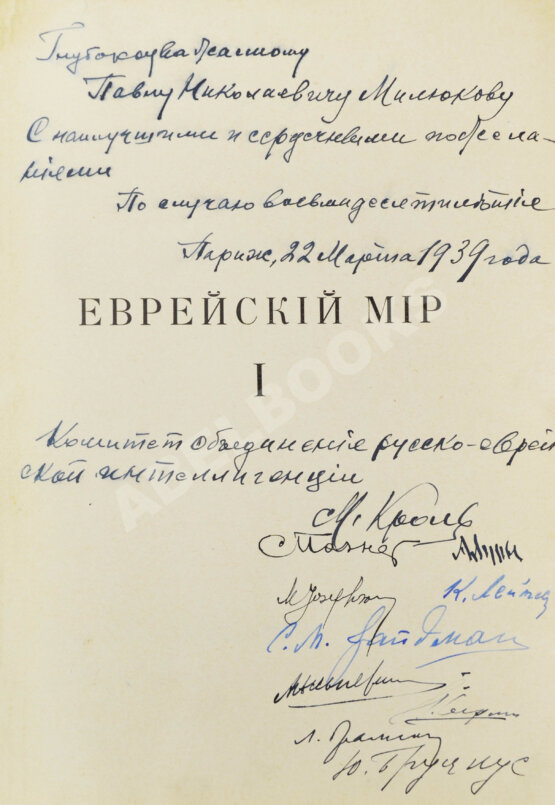 Глубокоуважаемому
Павлу Николаевичу Милюкову
С наилучшими и сердечными пожела-
ніями
По случаю восьмидесятилѣтія
Париж, 22 Марта 1939 года
ЕВРЕЙСКІЙ МІР
I
ABELBOOKS
Комитет объединенія русско-еврей
ской интеллигенціи
М. Кроль
К. Лейтес
С. М. Зайдман
Л.
Ю. Бруцкус